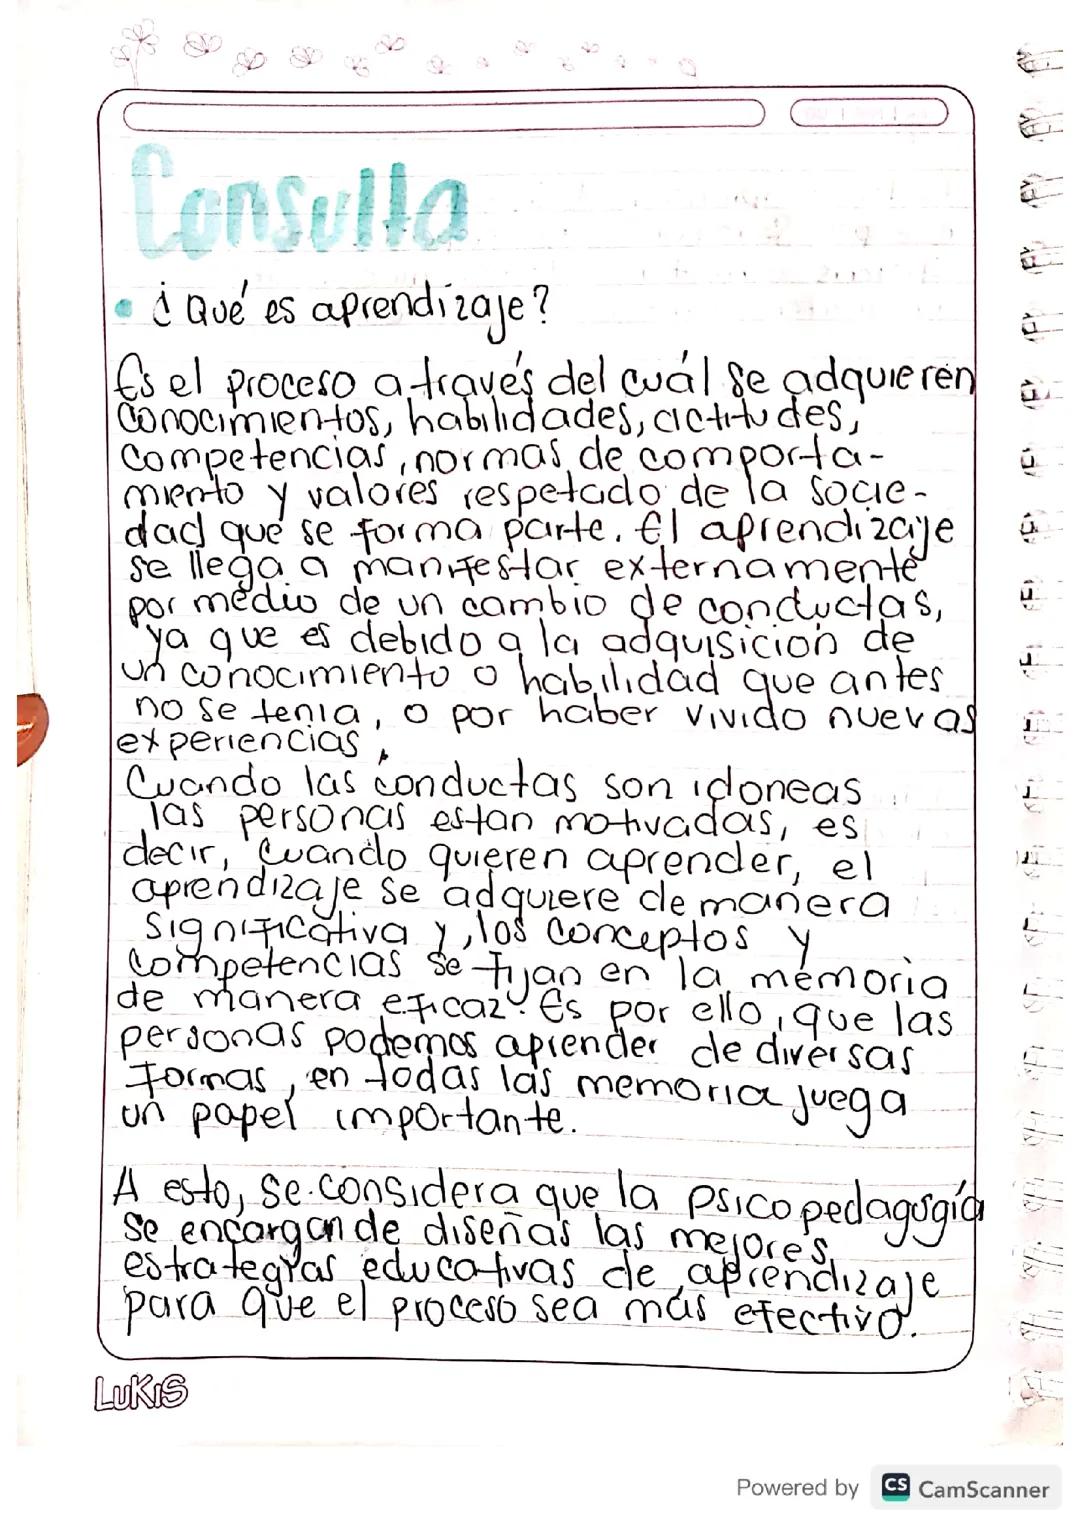 Consulta
• ¿Qué es aprendizaje?
Es el proceso a través del cuál se adquieren
conocimientos, habilidades, actitudes,
competencias, normas de comporta-
miento y valores respetado de la socie-
dad que se forma parte. El aprendizaje
se llega a manifestar externamente
por medio de un cambio de conductas,
ya que es debido a la adquisición de
un conocimiento o habilidad que antes
no se tenia, o por haber vivido nuevas
experiencias.
Cuando las conductas son idoneas
las personas estan motivadas, es
decir, cuando quieren aprender, el
aprendizaje se adquiere de manera
significativa y, los conceptos y
competencias se fijan en la memoria
de manera eficaz. Es por ello, que las
personas podemos aprender de diversas
formas, en todas las memoria juega
un papel importante.
A esto, se considera que la psicopedagogía
se encargan de diseñas las mejores
estrategias educativas de aprendizaje
para que el proceso sea más efectivo.
LUKIS
Powered by CS CamScanner